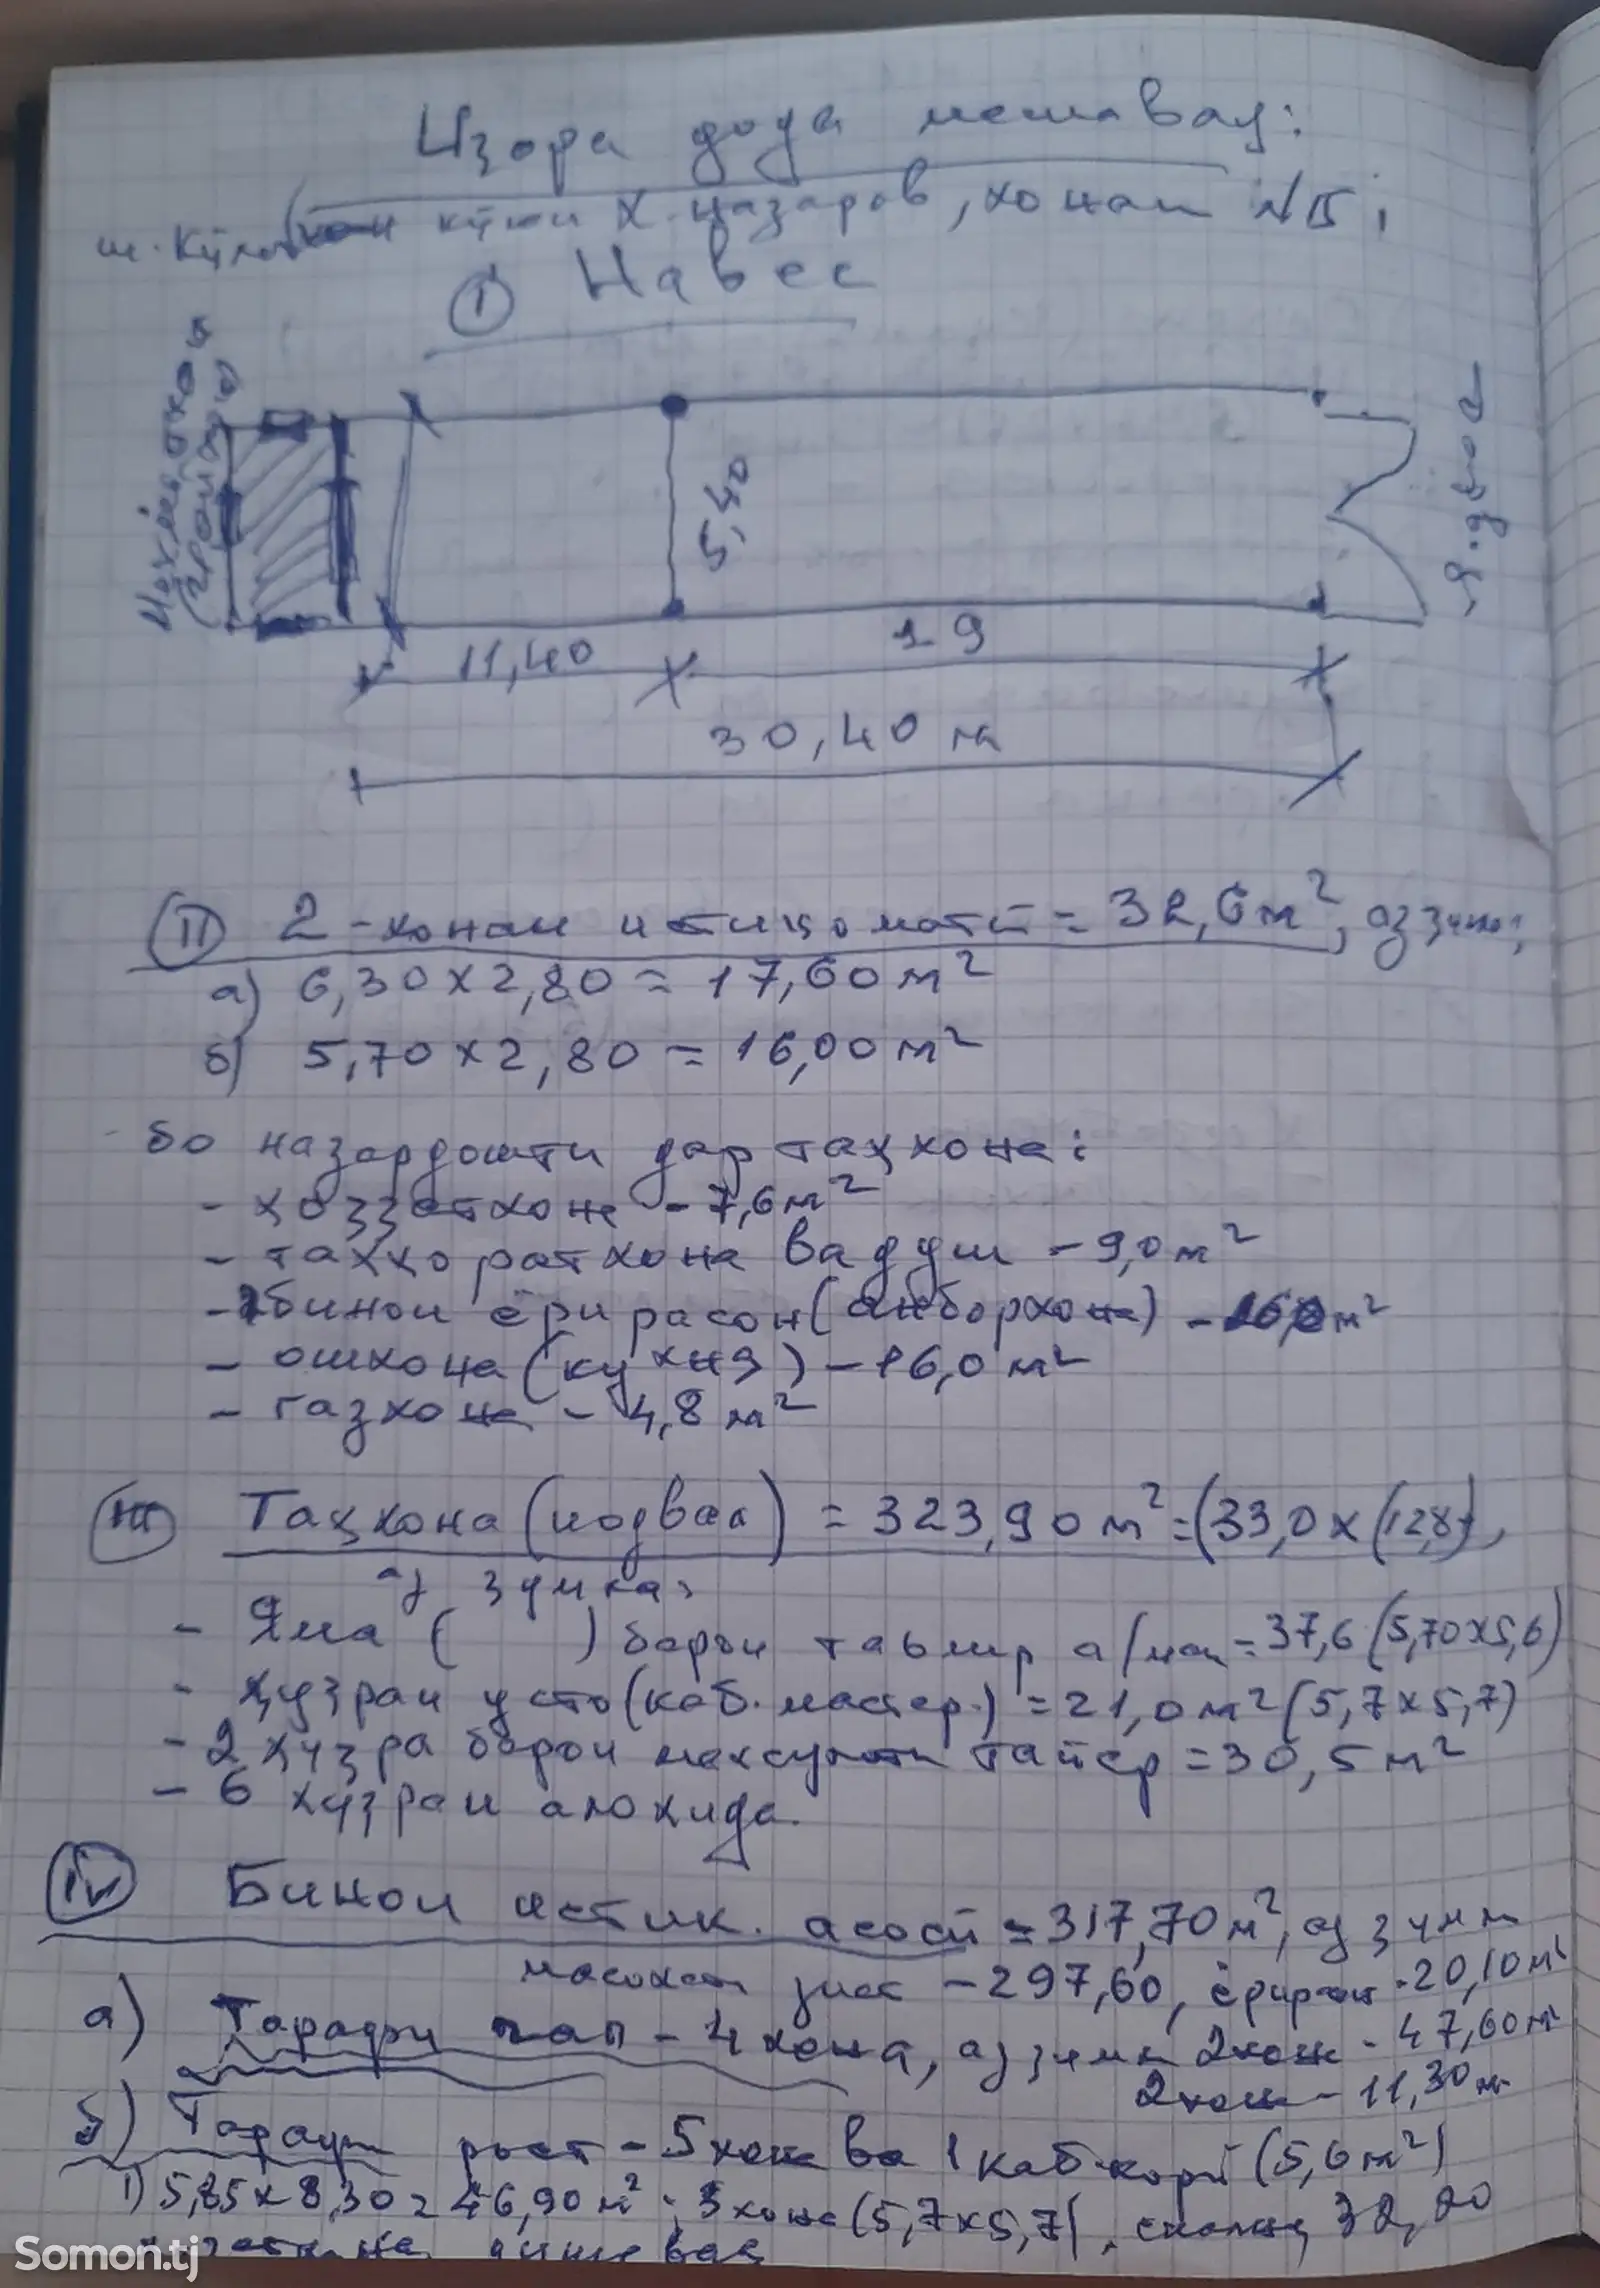 Иҷора дода мешавад:
кӯчаи Х. Назаров, хонаи №15;
① Навес
5,40
11,40
19
30,40 м
Ⅱ 2-хонаи истиқоматӣ = 32,6 м², аз ҷумла,
а) 6,30 x 2,80 = 17,60 м²
б) 5,70 x 2,80 = 16,00 м²
бо назардошти дар таҳхона:
- ҳоҷатхона - 7,6 м²
- таҳоратхона ва душ - 9,0 м²
бинои ёрирасон (анборхона) м²
- ошхона (кухня) - 16,0 м²
- газхона - 4,8 м²
III Таҳхона (подвал) = 323,90 м² = (33,0 x (12,8
аз ҷумла,
- Яма ( ) барои таъмир а/ма = 37,6 (5,70x5,6)
- ҳуҷраи усто (каб. мастер.) = 21,0 м² (5,7x5,7)
- 2 ҳуҷра барои махсулоти тайёр = 30,5 м²
- 6 ҳуҷраи алоҳида.
IV Бинои истик. асосӣ = 317,70 м², аз ҷумла
масоҳати зист - 297,60, - 20,10 м²
а) Тарафи чап - 4 хона, аз ҷумла 2 хона - 47,60 м²
2 хона - 11,30 м
б) Тарафи рост - 5 хона ва 1 каб. корӣ (5,6 м²)
1) 5,85 x 8,30 = 46,90 м² 3 хона (5,7x5,7), 32,20
Somon.tj